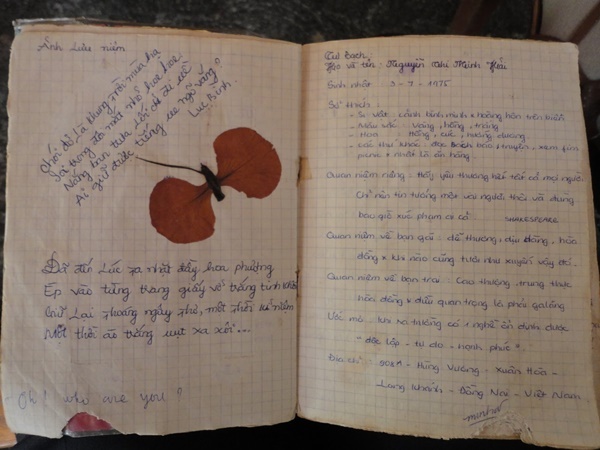 Ảnh lưu niệm
Chói đỏ là khung trời mùa hạ
Ai giữ được tiếng ve
Lục Bình
Đã đến lúc ta nhặt đầy hoa phượng
Ép vào từng trang giấy vở trắng tinh khôi
Giữ lại khoảng ngây thơ, một thời kỉ niệm
Một thời áo trắng vụt xa xôi...
Oh! who are you?
Tự Bạch
Họ và tên: Nguyễn Thị Minh Hoài
Sinh nhật 3-7-1975
Sở thích:
- Sự vật: cảnh bình minh & hoàng hôn trên biển
- Màu sắc: vàng, hồng, trắng
- Hoa: hồng, cúc, hướng dương
- Các thú khác: đọc sách báo, truyện, xem fim
& nhất là ăn hàng
Quan niệm riêng: thấy yêu thương hết tất cả mọi người
Chỉ nên tin tưởng một vài người thôi và đừng
bao giờ xúc phạm ai cả
SHAKESPEARE
Quan niệm về bạn gái: dễ thương, dịu dàng, hòa
đồng & khi nào cũng tươi như xuyến vậy đó.
Quan niệm về bạn trai: Cao thượng, trung thực
hòa đồng & điều quan trọng là phải galăng
Ước mơ: khi ra trường có 1 nghề ổn định được
"độc lập - tự do - hạnh phúc"
Địa chỉ: Hùng Vương - Xuân Hòa -
Long Khánh - Đồng Nai - Việt Nam